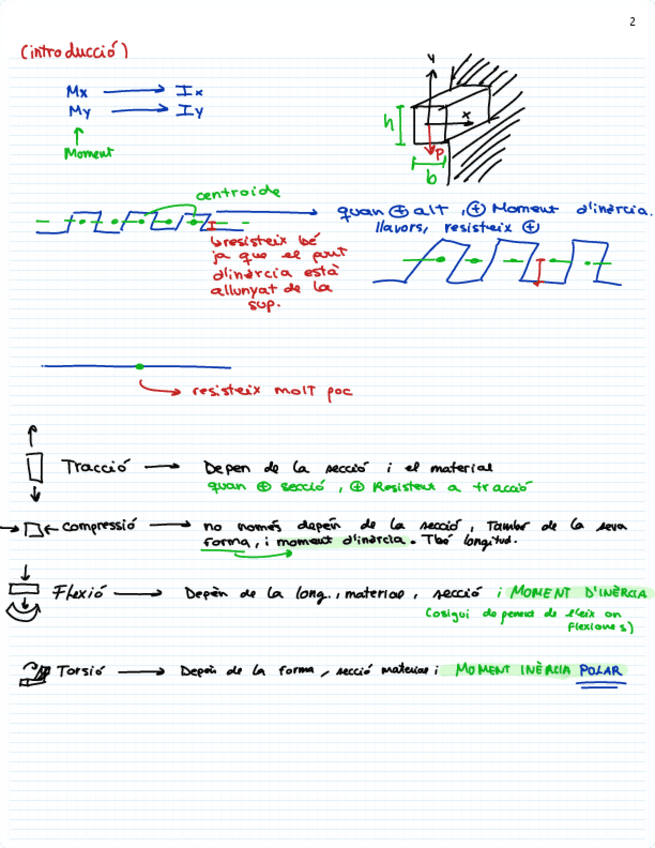 2
(introducció)
Mx → Ix
My → Iy
↑
Moment
y
x
h
P
b
centroide
quan ⊕ alt, ⊕ Moment d'inèrcia.
llavors, resisteix ⊕
resisteix bé
ja que el punt
d'inèrcia està
allunyat de la
sup.
resisteix molt poc
Tracció → Depen de la secció i el material
quan ⊕ secció, ⊕ Resistent a tracció
Compressió → no només depèn de la secció, També de la seva
forma, i moment d'inèrcia. Tbé longitud.
Flexió → Depèn de la long., material, secció i MOMENT D'INÈRCIA
(osigui depenent de l'eix on
flexiones)
Torsió → Depèn de la forma, secció material i MOMENT INÈRCIA POLAR